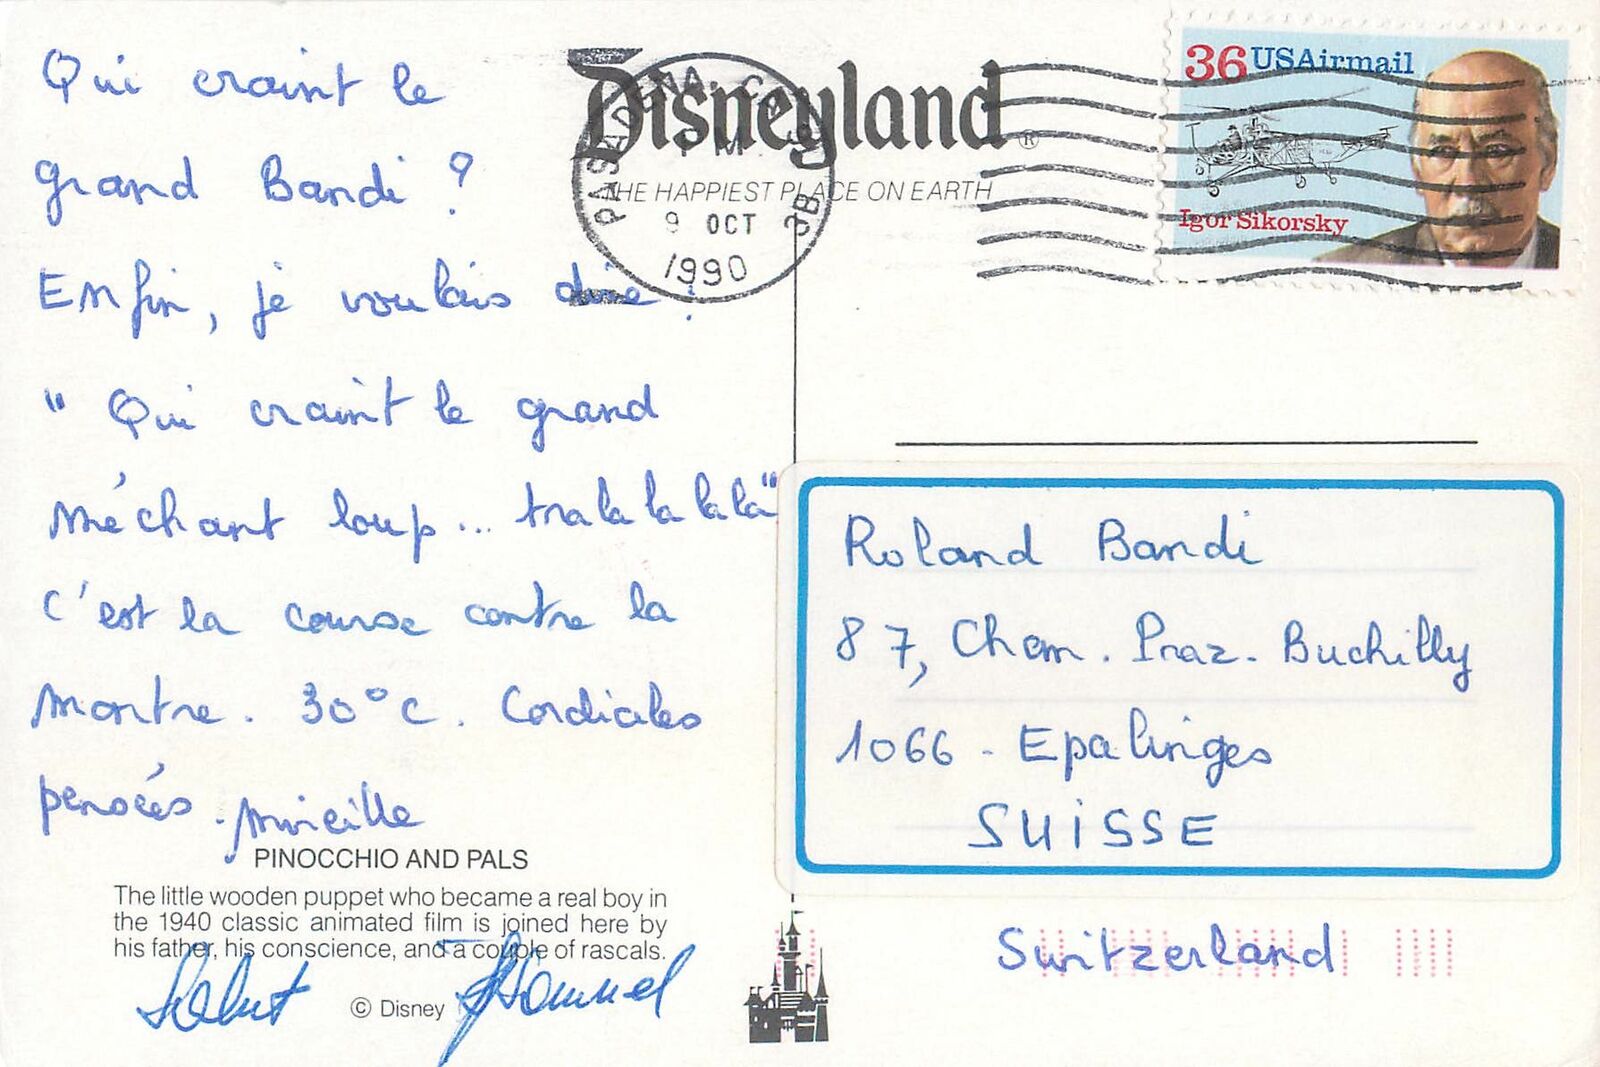 Qui craint le
grand Bandi ?
Enfin, je voulais dire :
" Qui craint le grand
méchant loup... tra la la la la"
C'est la course contre la
montre. 30°C. Cordiales
pensées. Mireille
PINOCCHIO AND PALS
The little wooden puppet who became a real boy in
the 1940 classic animated film is joined here by
his father, his conscience, and a couple of rascals.
Salut
© Disney
Disneyland®
THE HAPPIEST PLACE ON EARTH
PASADENA, CA
PM
9 OCT
1990
3B
36 USAirmail
Igor Sikorsky
Roland Bandi
87, Chem. Praz-Buchilly
1066 - Epalinges
SUISSE
Switzerland